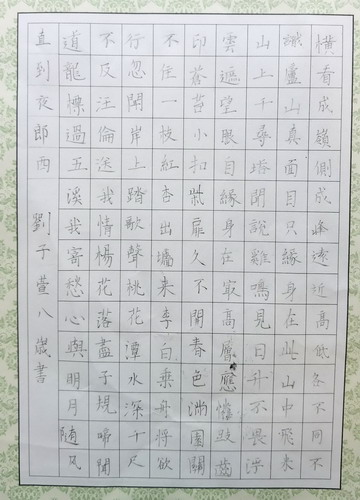 橫看成嶺側成峰遠近高低各不同不
識廬山真面目只緣身在此山中飛來
山上千尋塔聞說雞鳴見日升不畏浮
雲遮望眼自緣身在最高層應憐屐齒
印蒼苔小扣柴扉久不開春色滿園關
不住一枝紅杏出墻來李白乘舟將欲
行忽聞岸上踏歌聲桃花潭水深千尺
不及汪倫送我情楊花落盡子規啼聞
道龍標過五溪我寄愁心與明月隨風
直到夜郎西 劉子萱八歲書